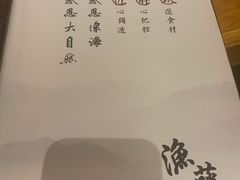 選食材
心把控
心獨造
感恩深海
感恩大自然
漁